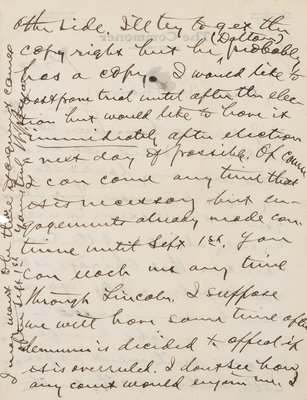 other side, I'll try to get the
copy right but he (Dalton) probably
has a copy. I would like to
postpone trial until after the elec
tion but would like to have it
immediately after election
next day if possible. Of course
I can come any time that
is necessary but en-
gagements already made con-
tinue until Sept 1st. You
can reach me any time
through Lincoln. I suppose
we will have some time after
demurrer is decided to appeal if
is overruled. I dont see how
any court would enjoin me.